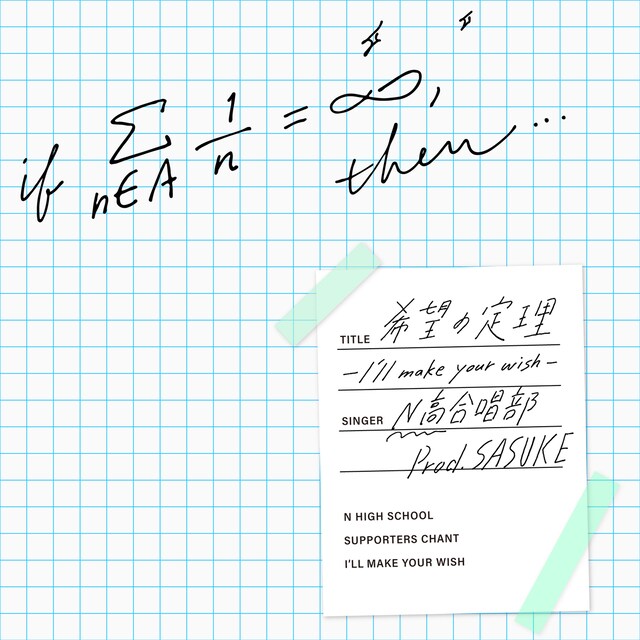 if ∑ n∈A 1/n = ∞,
then...
TITLE 希望の定理
-I'll make your wish-
SINGER N高合唱部
Prod. SASUKE
N HIGH SCHOOL
SUPPORTERS CHANT
I'LL MAKE YOUR WISH